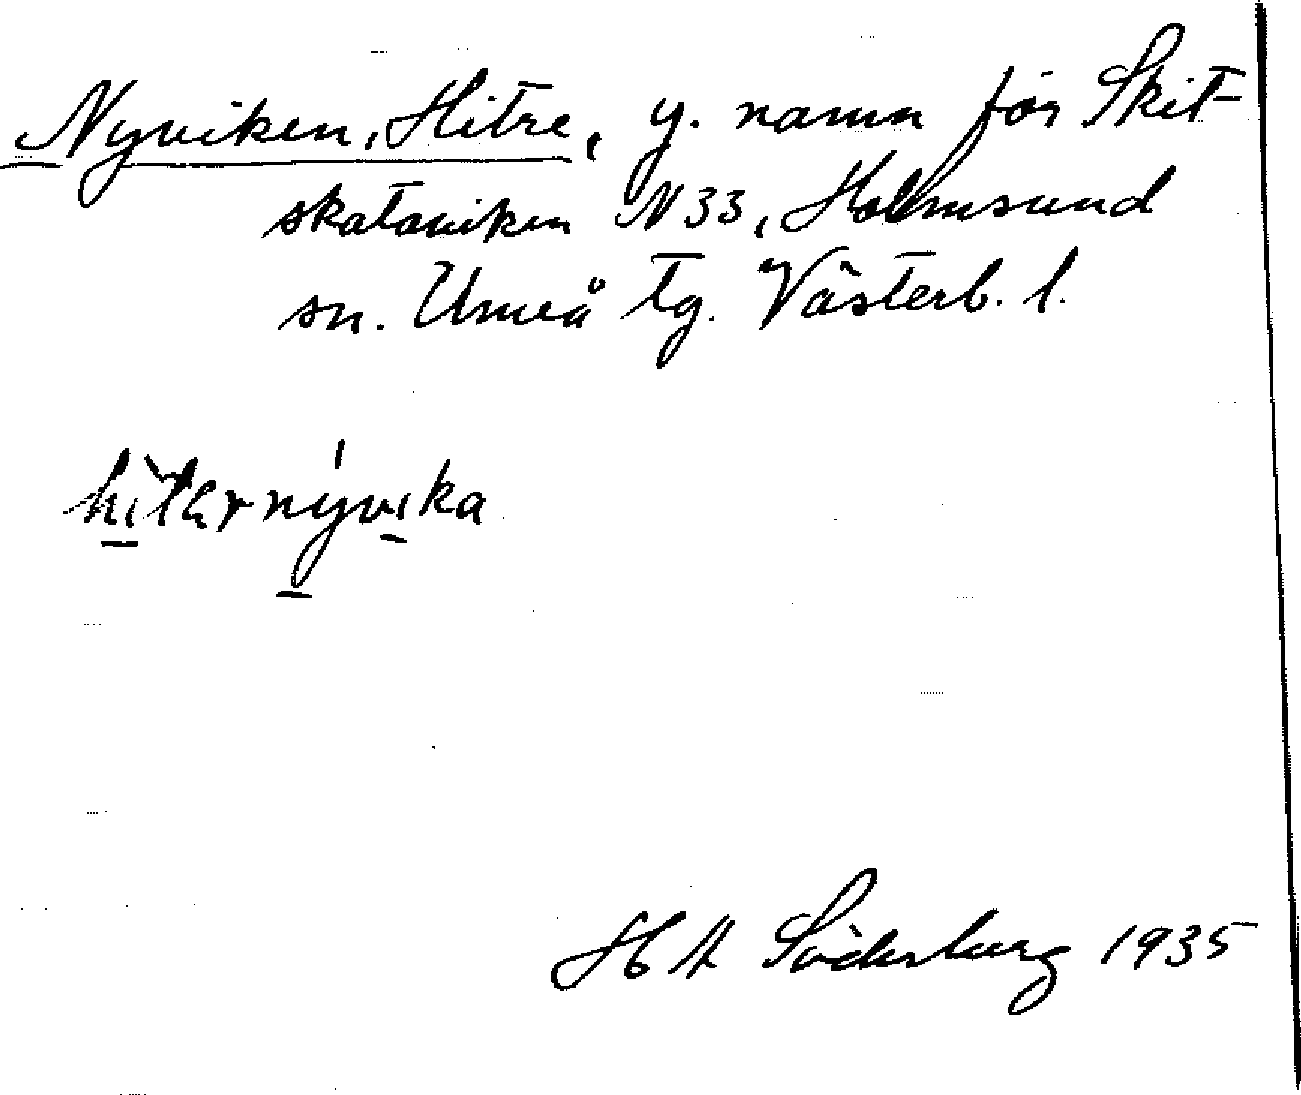 Nyviken, Hitre, y. namn för Skit-
skataviken N 33, Holmsund
sn. Umeå tg. Västerb. l.
hìtarnývika
H A Söderberg 1935